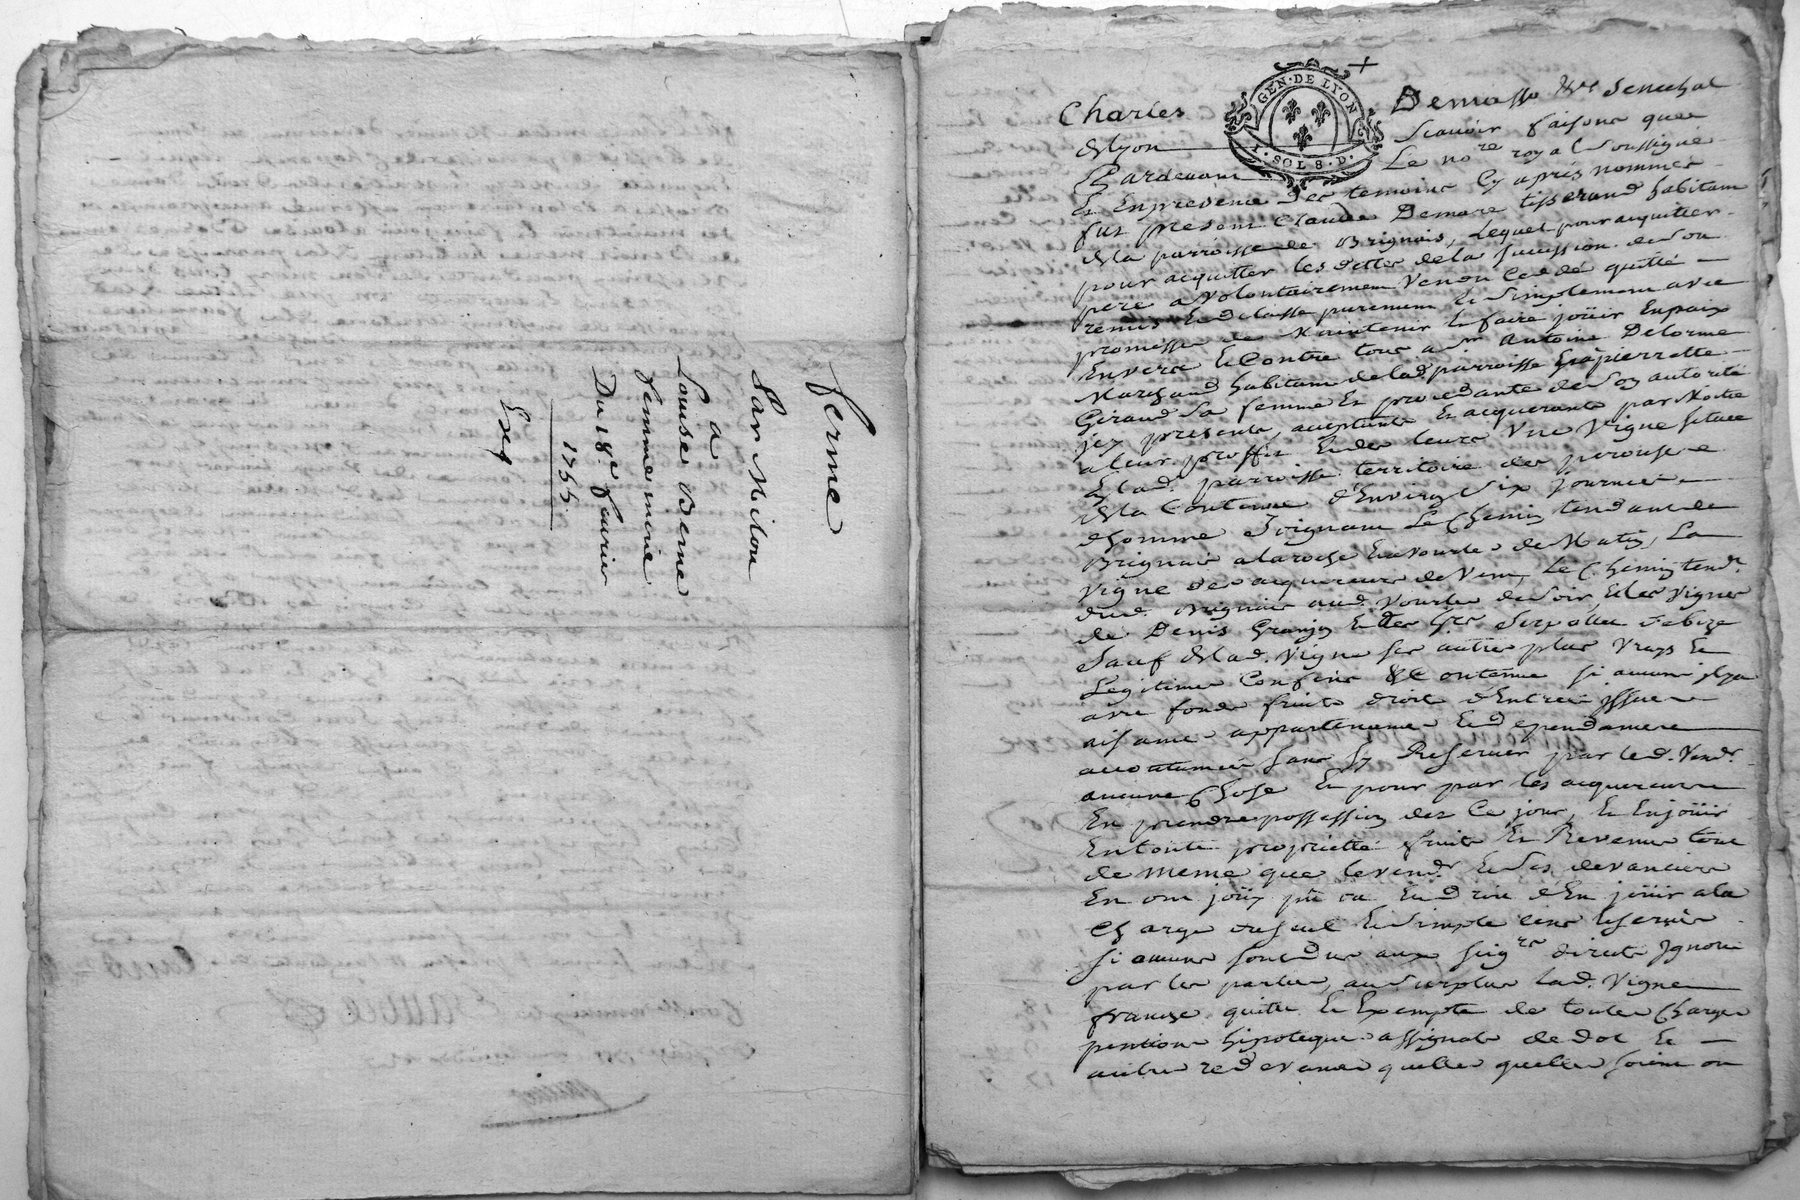 ferme
Par Milon
a
Louise Berne
femme merie
Du 18e feurier
1755.
Exg
GEN·DE LYON
I·SOLS·D·
Charles Demasso Senechal
de lyon Scauoir faisons que
Pardeuant Le nore royal soussigné
Et En presence des temoins Cy apres nommes
fut present Claude Demare tisserand habitant
de la parroisse de Brignais, Lequel pour acquitter
pour acquitter les dettes de la sucession de son
pere a volontairement vendu Cedé quitté
remis Et delaissé purement Et simplement avec
promesse de Maintenir Et faire joüir En paix
Envers Et Contre tous a sr Antoine Delorme
Marchand habitant de lad. parroisse Et a pierrette
Giraud sa femme Et procedante de son autorité
icy presents, aceptants Et acquerants par Moitié
a leur proffit Et des leurs Une Vigne située
En lad. parroisse territoire des perouses
de la Contenue d'Environ six journées
d'homme Joignant Le Chemin tendant de
Brignais a la roche Et a Vourles de Matin, La
Vigne des acquereurs de Vent, Le Chemin tendt
dud. Brignais aud. Vourles de soir, Et les Vignes
de Denis Granjon Et des de bize
Sauf de lad. Vigne ses autres plus Vrays Et
Legitimes Confins Et Contenue si aucuns il y a
avec fonds fruits droits d'Entrée issue
aisance appartenances Et dependances
accoutumées sans sy Reserver par led. Vendr
aucune Chose Et pour par les acquereurs
En prendre possession des Ce jour, Et En joüir
En toute proprieté fruits Et Revenus tout
de meme que le vendr Et ses devanciers
En ont joüy pû ou Eu droit d'En joüir a la
Charge du seul Et simple cens Et servis
si aucuns sont dus aux seigrs directs Ignorés
par les parties, au surplus lad. Vigne
franche quitte Et Exempte de toutes Charges
pentions hipoteque assignats de dot Et
autres redevances quelles quelles soient ou